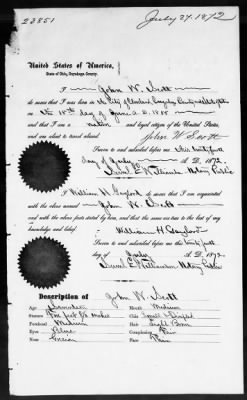 23851
July 24. 1872
United States of America,
State of Ohio, Cuyahoga County.
I John W. Scott
do swear that I was born in the City of Cleveland Cuyahoga County
on the 18th day of June A.D. 1855
and that I am a native and loyal citizen of the United States,
and am about to travel abroad. John W Scott
Sworn to and subscribed before me this twenty first
day of July A.D. 1872.
Samuel E Williamson Notary Public
I William H. Gaylord do swear that I am acquainted
with the above named John W. Scott
and with the above facts stated by him, and that the same are true to the best of my
knowledge and belief.
William H Gaylord
Sworn to and subscribed before me this
day of July A.D. 1872.
Samuel E Williamson Notary Public
Description of John W. Scott
Age
Mouth Medium
Stature Five feet
Chin
Forehead Medium
Hair
Eyes Blue
Complexion Fair
Nose
Face